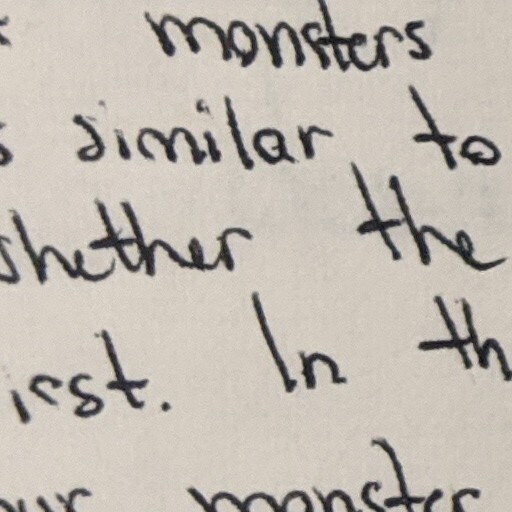 monsters
similar to
whether the
irst. In th
our monster